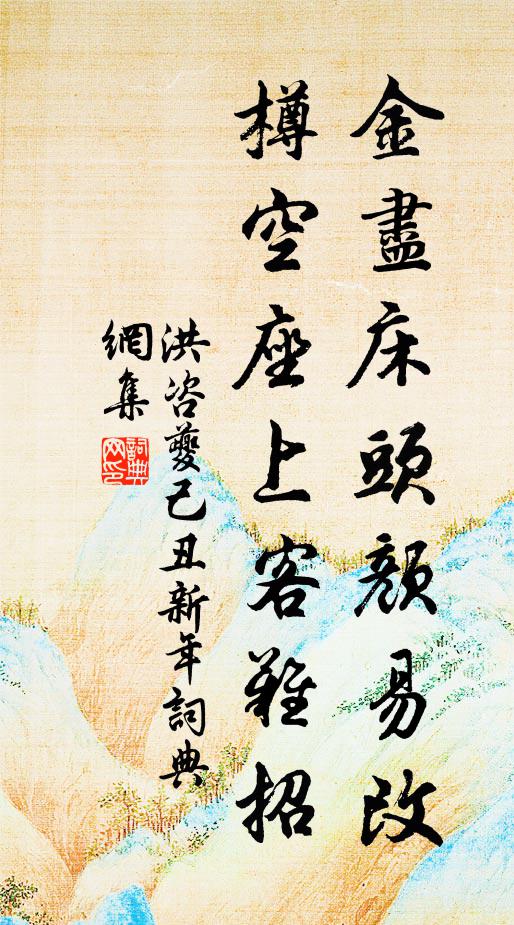 金盡床頭顏易改
樽空座上客難招
洪咨夔己丑新年詞典
網集
詞典網印